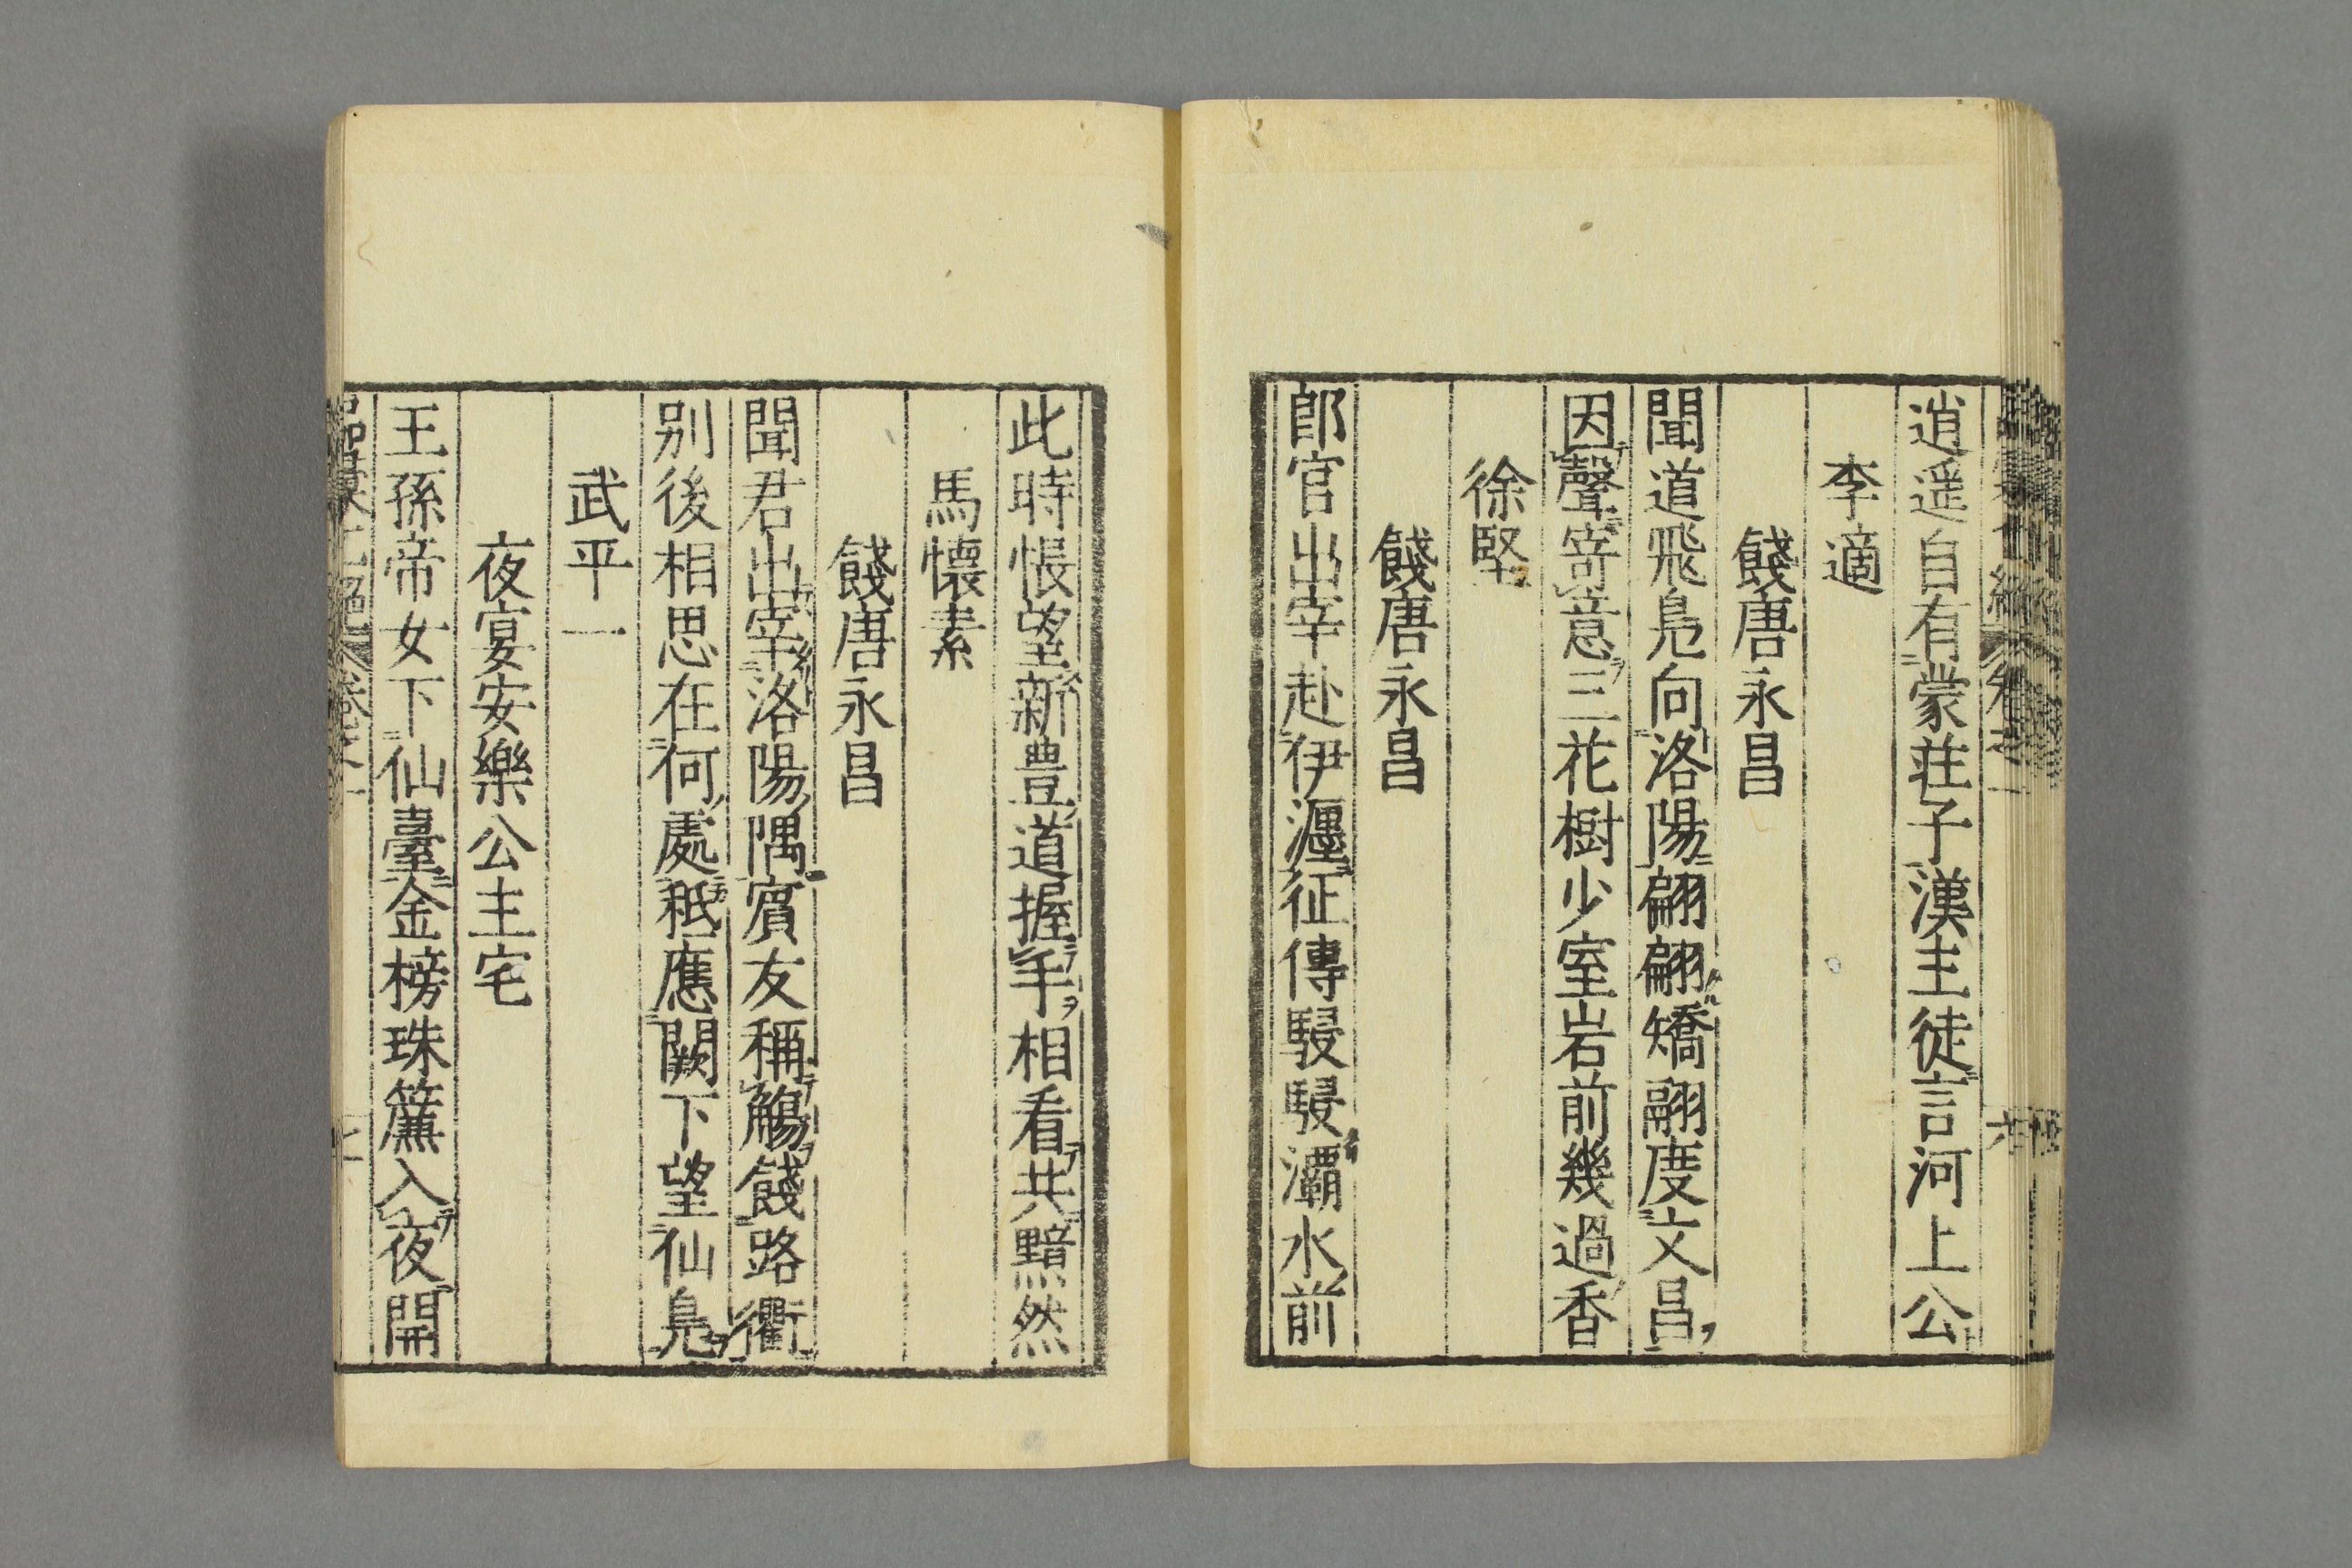 逍遥自有蒙荘子漢主徒言河上公
李適
餞唐永昌
聞道飛鳬向洛陽翩翩矯翮度文昌
因聲寄意三花樹少室岩前幾過香
徐堅
餞唐永昌
郎官出宰赴伊瀍征傳駸駸灞水前
此時悵望新豊道握手相看共黯然
馬懐素
餞唐永昌
聞君出宰洛陽隅賓友稱觴餞路衢
别後相思在何處秪應闕下望仙鳬
武平一
夜宴安樂公主宅
王孫帝女下仙臺金榜珠簾入夜開